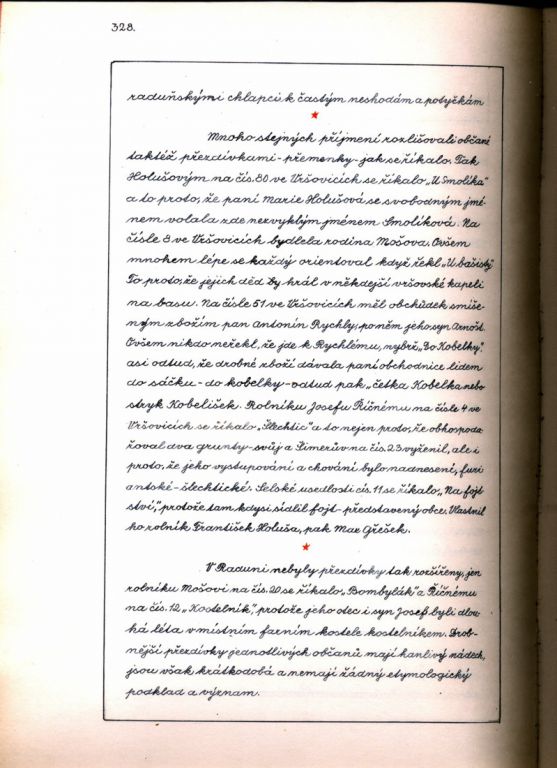 328.
raduňskými chlapci k častým neshodám a potyčkám
Mnoho stejných příjmení rozlišovali občané
taktéž přezdívkami - přemenky - jak se říkalo. Tak
Holušovým na čís. 80 ve Vršovicích se říkalo „U Smolíka"
a to proto, že paní Marie Holušová se svobodným jmé-
nem volala zde nezvyklým jménem Smolíková. Na
čísle 8 ve Vršovicích bydlela rodina Mošova. Ovšem
mnohem lépe se každý orientoval když řekl „U bašisty"
To proto, že jejich děd by hrál v někdejší vršovské kapeli
na basu. Na čísle 51 ve Vršovicích měl obchůdek smíše-
ným zbožím pan Antonín Rychlý, po něm jeho syn Arnošt.
Ovšem nikdo neřekl, že jde k Rychlému, nýbrž „Do Kobelky",
asi odtud, že drobné zboží dávala paní obchodnice lidem
do sáčku - do kobelky - odtud pak „četka Kobelka nebo
stryk Kobelišek. Rolníku Josefu Říčnému na čísle 4 ve
Vršovicích se říkalo „Šlechtic" a to nejen proto, že obhospoda
řoval dva grunty - svůj a Šimerův na čís. 23 vyženil, ale i
proto, že jeho vystupování a chování bylo nadnesení, furi
antské - šlechtické. Selské usedlosti čís. 11 se říkalo „Na fojt
ství", protože tam kdysi sídlil fojt - představený obce. Vlastnil
ho rolník František Holuša, pak Max Gřešek.
V Raduni nebyly přezdívky tak rozšířeny, jen
rolníku Mošovi na čís. 20 se říkalo „Bombylák" a Říčnému
na čís. 12 „Kostelník", protože jeho otec i syn Josef byli dlou
há léta v místním farním kostele kostelníkem. Drob-
nější přezdívky jednotlivých občanů mají hanlivý nádech,
jsou však krátkodobá a nemají žádný etymologický
podklad a význam.